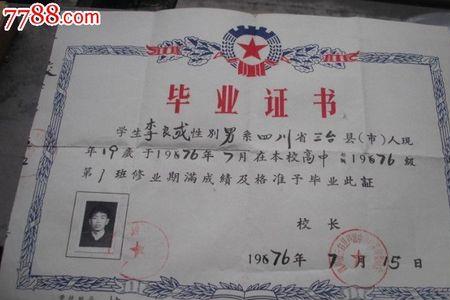 7788.com
毕业证书
学生李良或性别男系四川省三台县(市)人现
年19岁于19876年7月在本校高中 19876级
第1班修业期满成绩及格准予毕业此证
校长
19876年7月15日